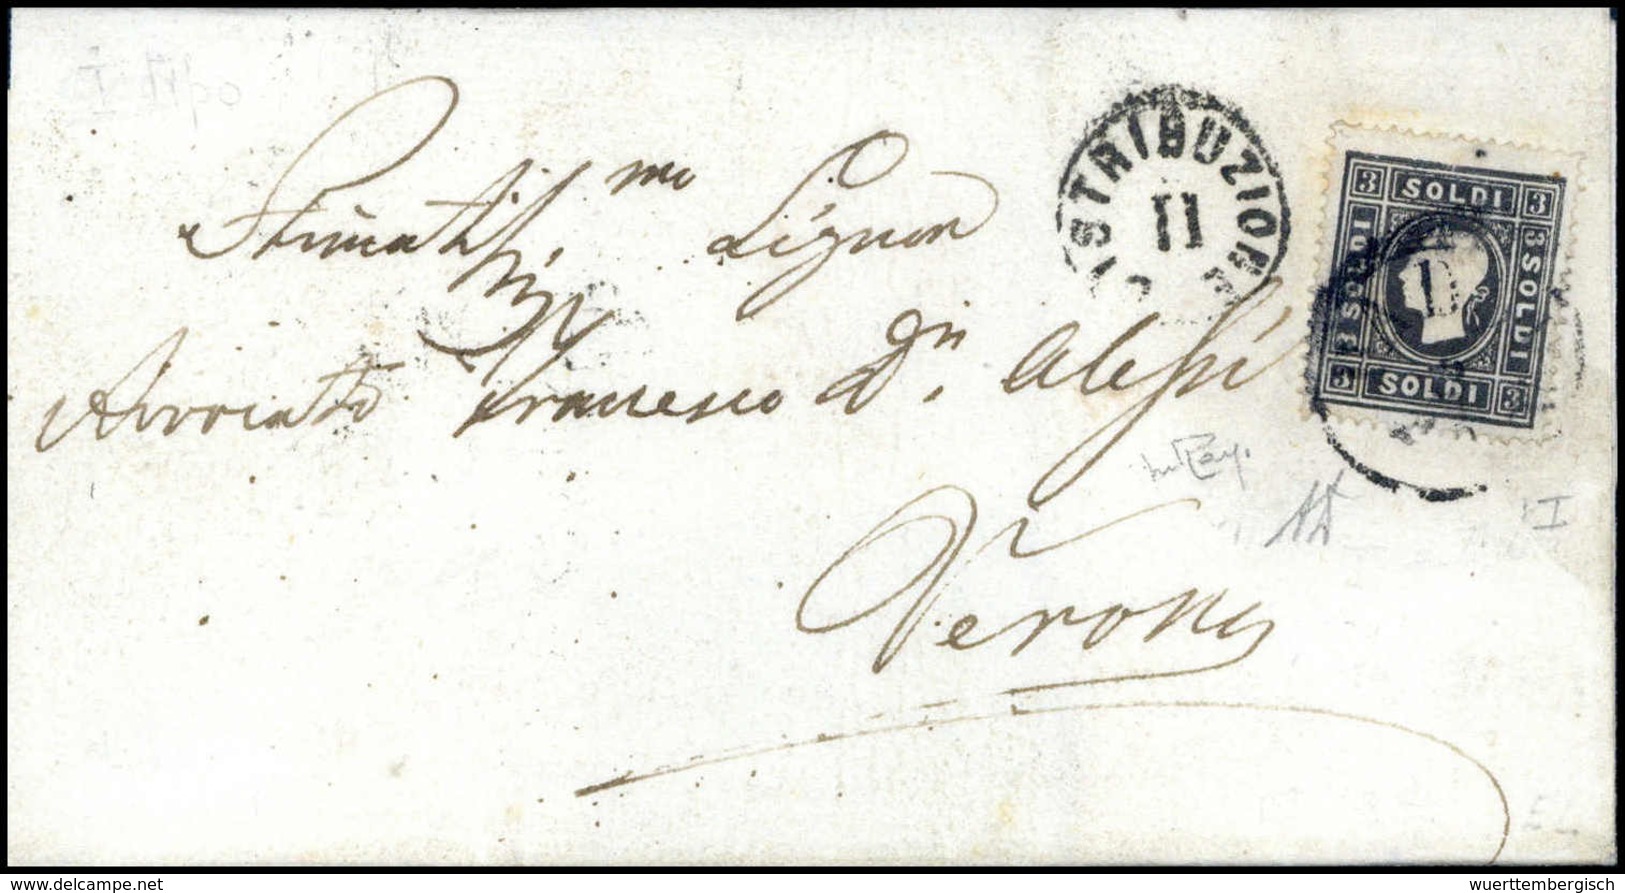 I tipo
DISTRIBUZIONE
II
3 SOLDI 3
SOLDI
3 SOLDI
D
3 SOLDI 3
Stimatissi.mo Signor
Avvocato Francesco Dn. Alessi
Verona
I
www.delcampe.net
wuerttembergisch